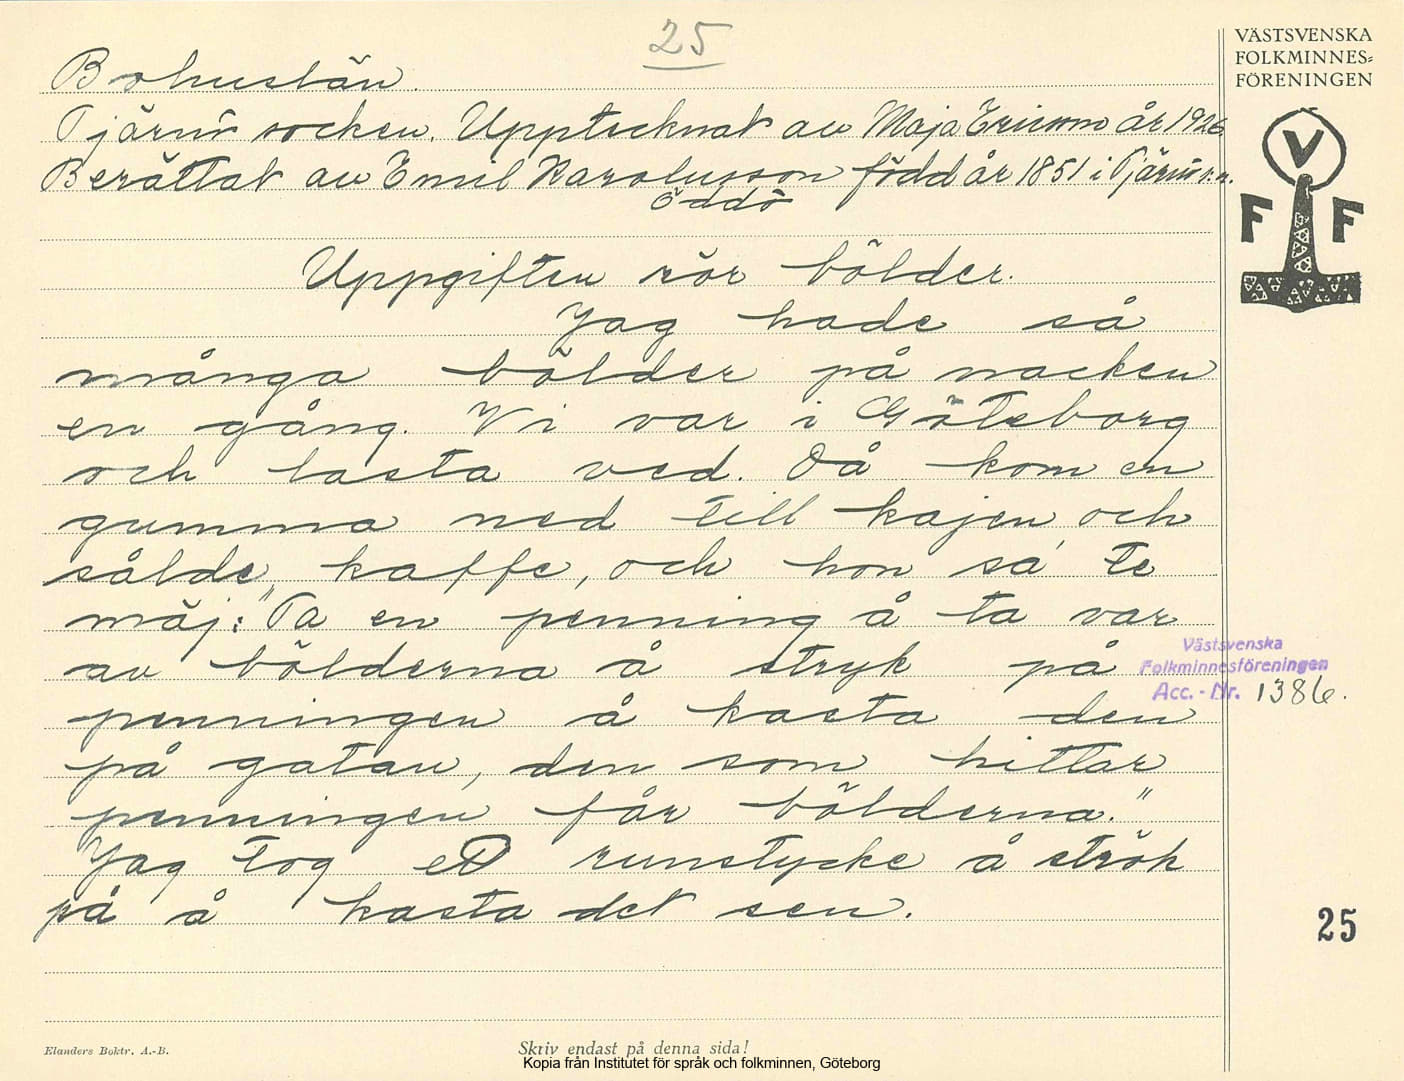 25
VÄSTSVENSKA
FOLKMINNES=
FÖRENINGEN
V
F F
Bohuslän.
Tjärnö socken. Upptecknat av Maja Ericson år 1926
Berättat av Emil Karolusson född år 1851 i Tjärnö s.n.
Öddö
Uppgiften rör bölder.
Jag hade så
många bölder på nacken
en gång. Vi var i Göteborg
och lasta ved. Då kom en
gumma ned till kajen och
sålde kaffe, och hon sa' te
mäj: "Ta en penning å ta var
av bölderna å stryk på
penningen å kasta den
på gatan, den som hittar
penningen får bölderna."
Jag tog et runstycke å strök
på å kasta det sen.
Västsvenska
Folkminnesföreningen
Acc. - Nr. 1386.
25
Elanders Boktr. A.-B.
Skriv endast på denna sida!
Kopia från Institutet för språk och folkminnen, Göteborg